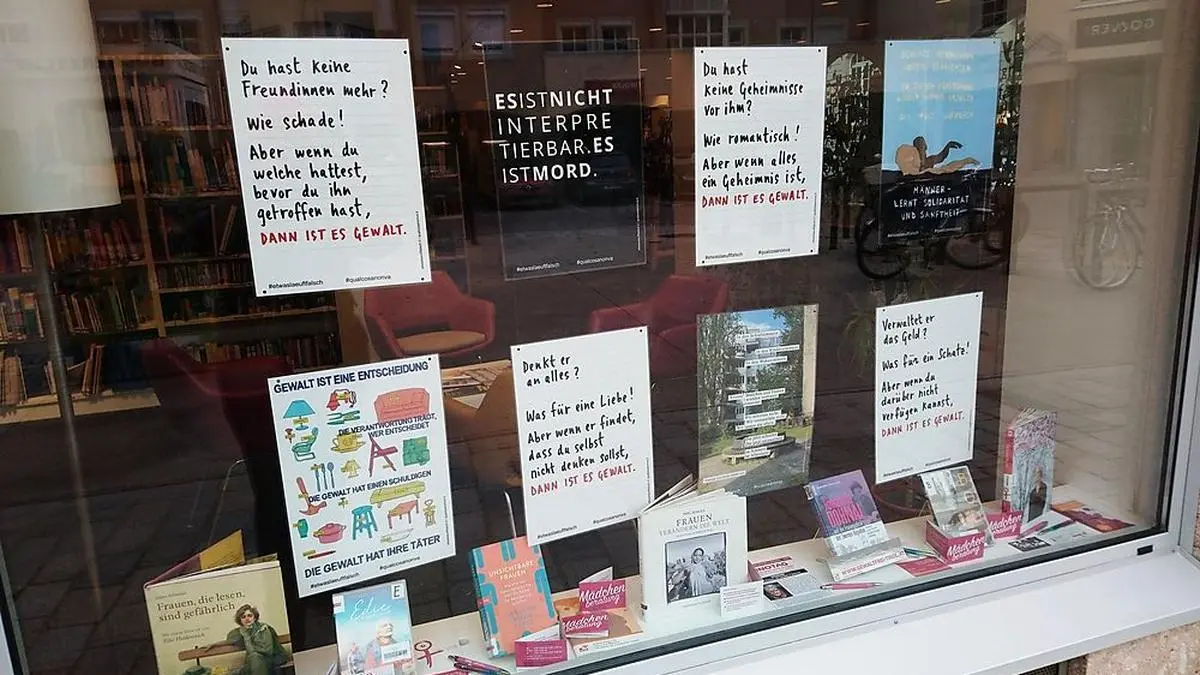 Du hast keine
Freundinnen mehr?
Wie schade!
Aber wenn du
welche hattest,
bevor du ihn
getroffen hast,
DANN IST ES GEWALT.
#etwaslaeuftfalsch #qualcosanonva
ESISTNICHT
INTERPRE
TIERBAR.ES
ISTMORD.
#etwaslaeuftfalsch #qualcosanonva
Du hast
keine Geheimnisse
vor ihm?
Wie romantisch!
Aber wenn alles
ein Geheimnis ist,
DANN IST ES GEWALT.
#etwaslaeuftfalsch #qualcosanonva
MÄNNER-
LERNT SOLIDARITÄT
UND SANFTHEIT
GEWALT IST EINE ENTSCHEIDUNG
DIE VERANTWORTUNG TRÄGT,
WER ENTSCHEIDET
DIE GEWALT HAT EINEN SCHULDIGEN
DIE GEWALT HAT IHRE TÄTER
#etwaslaeuftfalsch #qualcosanonva
Denkt er
an alles?
Was für eine Liebe!
Aber wenn er findet,
dass du selbst
nicht denken sollst,
DANN IST ES GEWALT.
#etwaslaeuftfalsch #qualcosanonva
Verwaltet er
das Geld?
Was für ein Schatz!
Aber wenn du
darüber nicht
verfügen kannst,
DANN IST ES GEWALT.
#etwaslaeuftfalsch #qualcosanonva
Frauen, die lesen,
sind gefährlich
Edie
E
UNSICHTBARE
FRAUEN
Mädchen
beratung
Mädchen
beratung
FRAUEN
VERÄNDERN DIE WELT
Mädchen
beratung
Mädchen
beratung